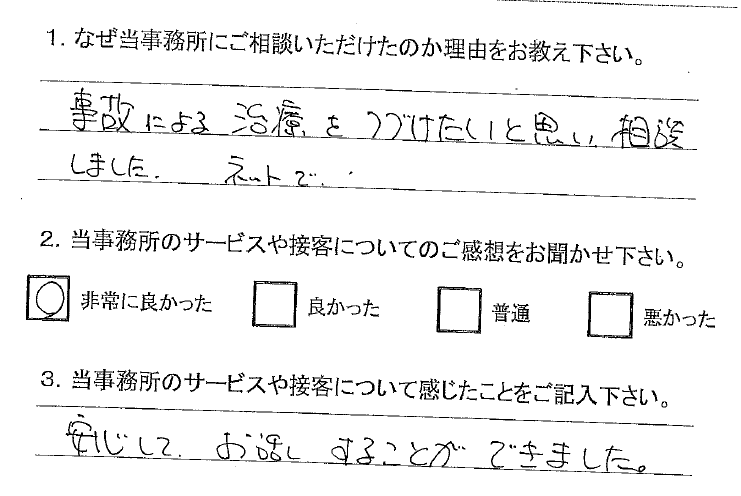 1. なぜ当事務所にご相談いただけたのか理由をお教え下さい。
事故による治療をつづけたいと思い、相談
しました。 ネットで、
2. 当事務所のサービスや接客についてのご感想をお聞かせ下さい。
○ 非常に良かった 良かった 普通 悪かった
3. 当事務所のサービスや接客について感じたことをご記入下さい。
安じして お話し することが できました。